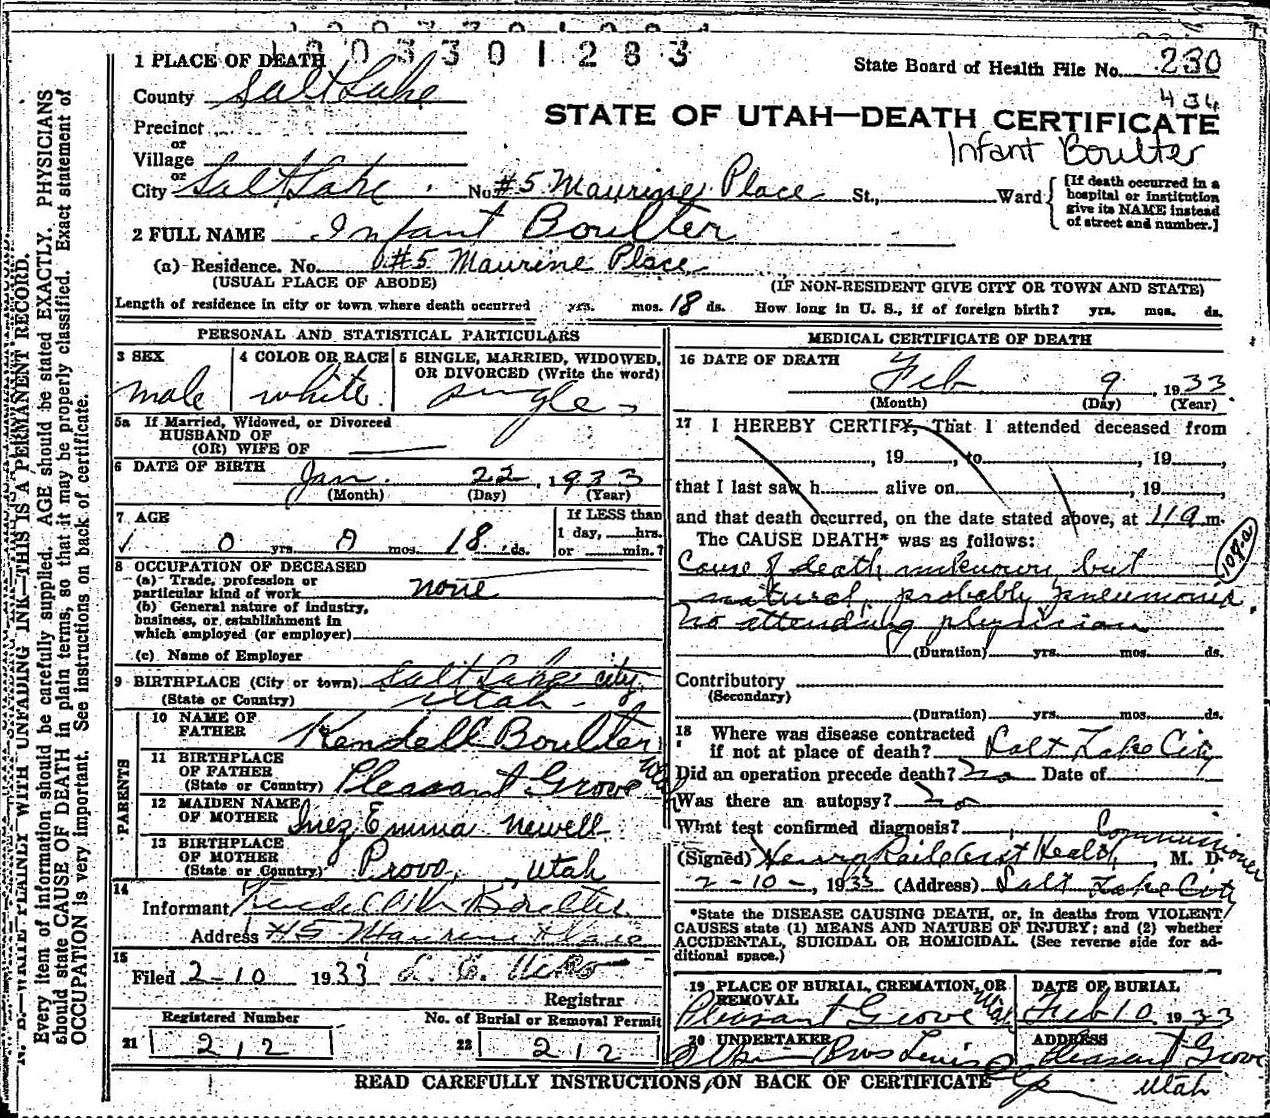 1003301283
1 PLACE OF DEATH
State Board of Health File No. 230
434
County Salt Lake
STATE OF UTAH—DEATH CERTIFICATE
Precinct
or
Infant Boulter
Village
or
City Salt Lake. No. #5 Maurine Place St., Ward
[If death occurred in a hospital or institution give its NAME instead of street and number.]
2 FULL NAME Infant Boulter
(a) Residence. No. #5 Maurine Place
(USUAL PLACE OF ABODE) (IF NON-RESIDENT GIVE CITY OR TOWN AND STATE)
Length of residence in city or town where death occurred yrs. mos. 18 ds. How long in U. S., if of foreign birth? yrs. mos. ds.
PERSONAL AND STATISTICAL PARTICULARS
3 SEX male
4 COLOR OR RACE white.
5 SINGLE, MARRIED, WIDOWED, OR DIVORCED (Write the word) single
5a If Married, Widowed, or Divorced
HUSBAND OF
(OR) WIFE OF
6 DATE OF BIRTH Jan. 22, 1933
(Month) (Day) (Year)
7 AGE
0 yrs. 0 mos. 18 ds.
If LESS than
1 day, hrs.
or min.?
8 OCCUPATION OF DECEASED
(a) Trade, profession or
particular kind of work none
(b) General nature of industry,
business, or establishment in
which employed (or employer)
(c) Name of Employer
9 BIRTHPLACE (City or town) Salt Lake City
(State or Country) Utah
PARENTS
10 NAME OF FATHER Kendell Boulter
11 BIRTHPLACE OF FATHER (State or Country) Pleasant Grove Utah
12 MAIDEN NAME OF MOTHER Inez Emma Newell
13 BIRTHPLACE OF MOTHER (State or Country) Provo, Utah
14
Informant Boulter
Address #5 Maurine Place
15
Filed 2-10 1933
Registrar
Registered Number
21 212
No. of Burial or Removal Permit
22 212
MEDICAL CERTIFICATE OF DEATH
16 DATE OF DEATH
Feb 9 1933
(Month) (Day) (Year)
17 I HEREBY CERTIFY, That I attended deceased from
, 19 , to , 19 ,
that I last saw h alive on , 19 ,
and that death occurred, on the date stated above, at 11 a m.
The CAUSE DEATH* was as follows:
Cause of death unknown, but
natural, probably pneumonia.
No attending physician
(Duration) yrs. mos. ds.
Contributory
(Secondary)
(Duration) yrs. mos. ds.
18 Where was disease contracted
if not at place of death? Salt Lake City
Did an operation precede death? No Date of
Was there an autopsy? No
What test confirmed diagnosis?
(Signed) Health Commissioner, M. D.
2-10-, 1933 (Address) Salt Lake City
*State the DISEASE CAUSING DEATH, or, in deaths from VIOLENT
CAUSES state (1) MEANS AND NATURE OF INJURY; and (2) whether
ACCIDENTAL, SUICIDAL OR HOMICIDAL. (See reverse side for ad-
ditional space.)
19 PLACE OF BURIAL, CREMATION, OR REMOVAL
Pleasant Grove Utah
DATE OF BURIAL
Feb 10 1933
20 UNDERTAKER
Bros
ADDRESS
Pleasant Grove
Utah
READ CAREFULLY INSTRUCTIONS ON BACK OF CERTIFICATE
N. B.—WRITE PLAINLY WITH UNFADING INK—THIS IS A PERMANENT RECORD.
Every item of information should be carefully supplied. AGE should be stated EXACTLY. PHYSICIANS
should state CAUSE OF DEATH in plain terms, so that it may be properly classified. Exact statement of
OCCUPATION is very important. See instructions on back of certificate.